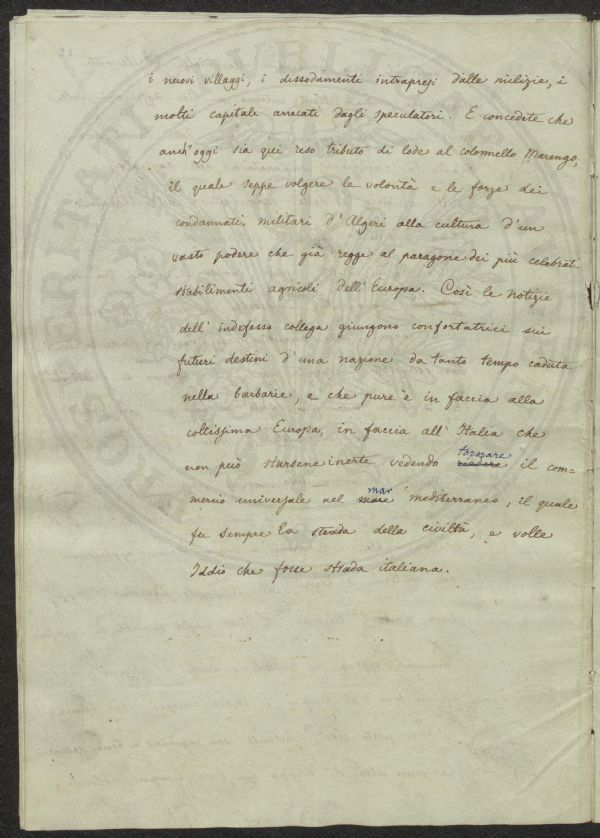 i nuovi villaggi, i dissodamenti intrapresi dalle milizie, i
molti capitali arrecati dagli speculatori. E concedete che
anch'oggi sia qui reso tributo di lode al colonnello Marengo,
il quale seppe volgere le volontà e le forze dei
condannati militari d'Algeri alla cultura d'un
vasto podere che già regge al paragone dei più celebrati
stabilimenti agricoli dell'Europa. Così le notizie
dell'indefesso collega giungono confortatrici sui
futuri destini d'una nazione da tanto tempo caduta
nella barbarie, e che pure è in faccia alla
coltissima Europa, in faccia all'Italia che
tornare
non può starsene inerte vedendo riedere il com-
mar
mercio universale nel mare mediterraneo, il quale
fu sempre la strada della civiltà, e volle
Iddio che fosse strada italiana.